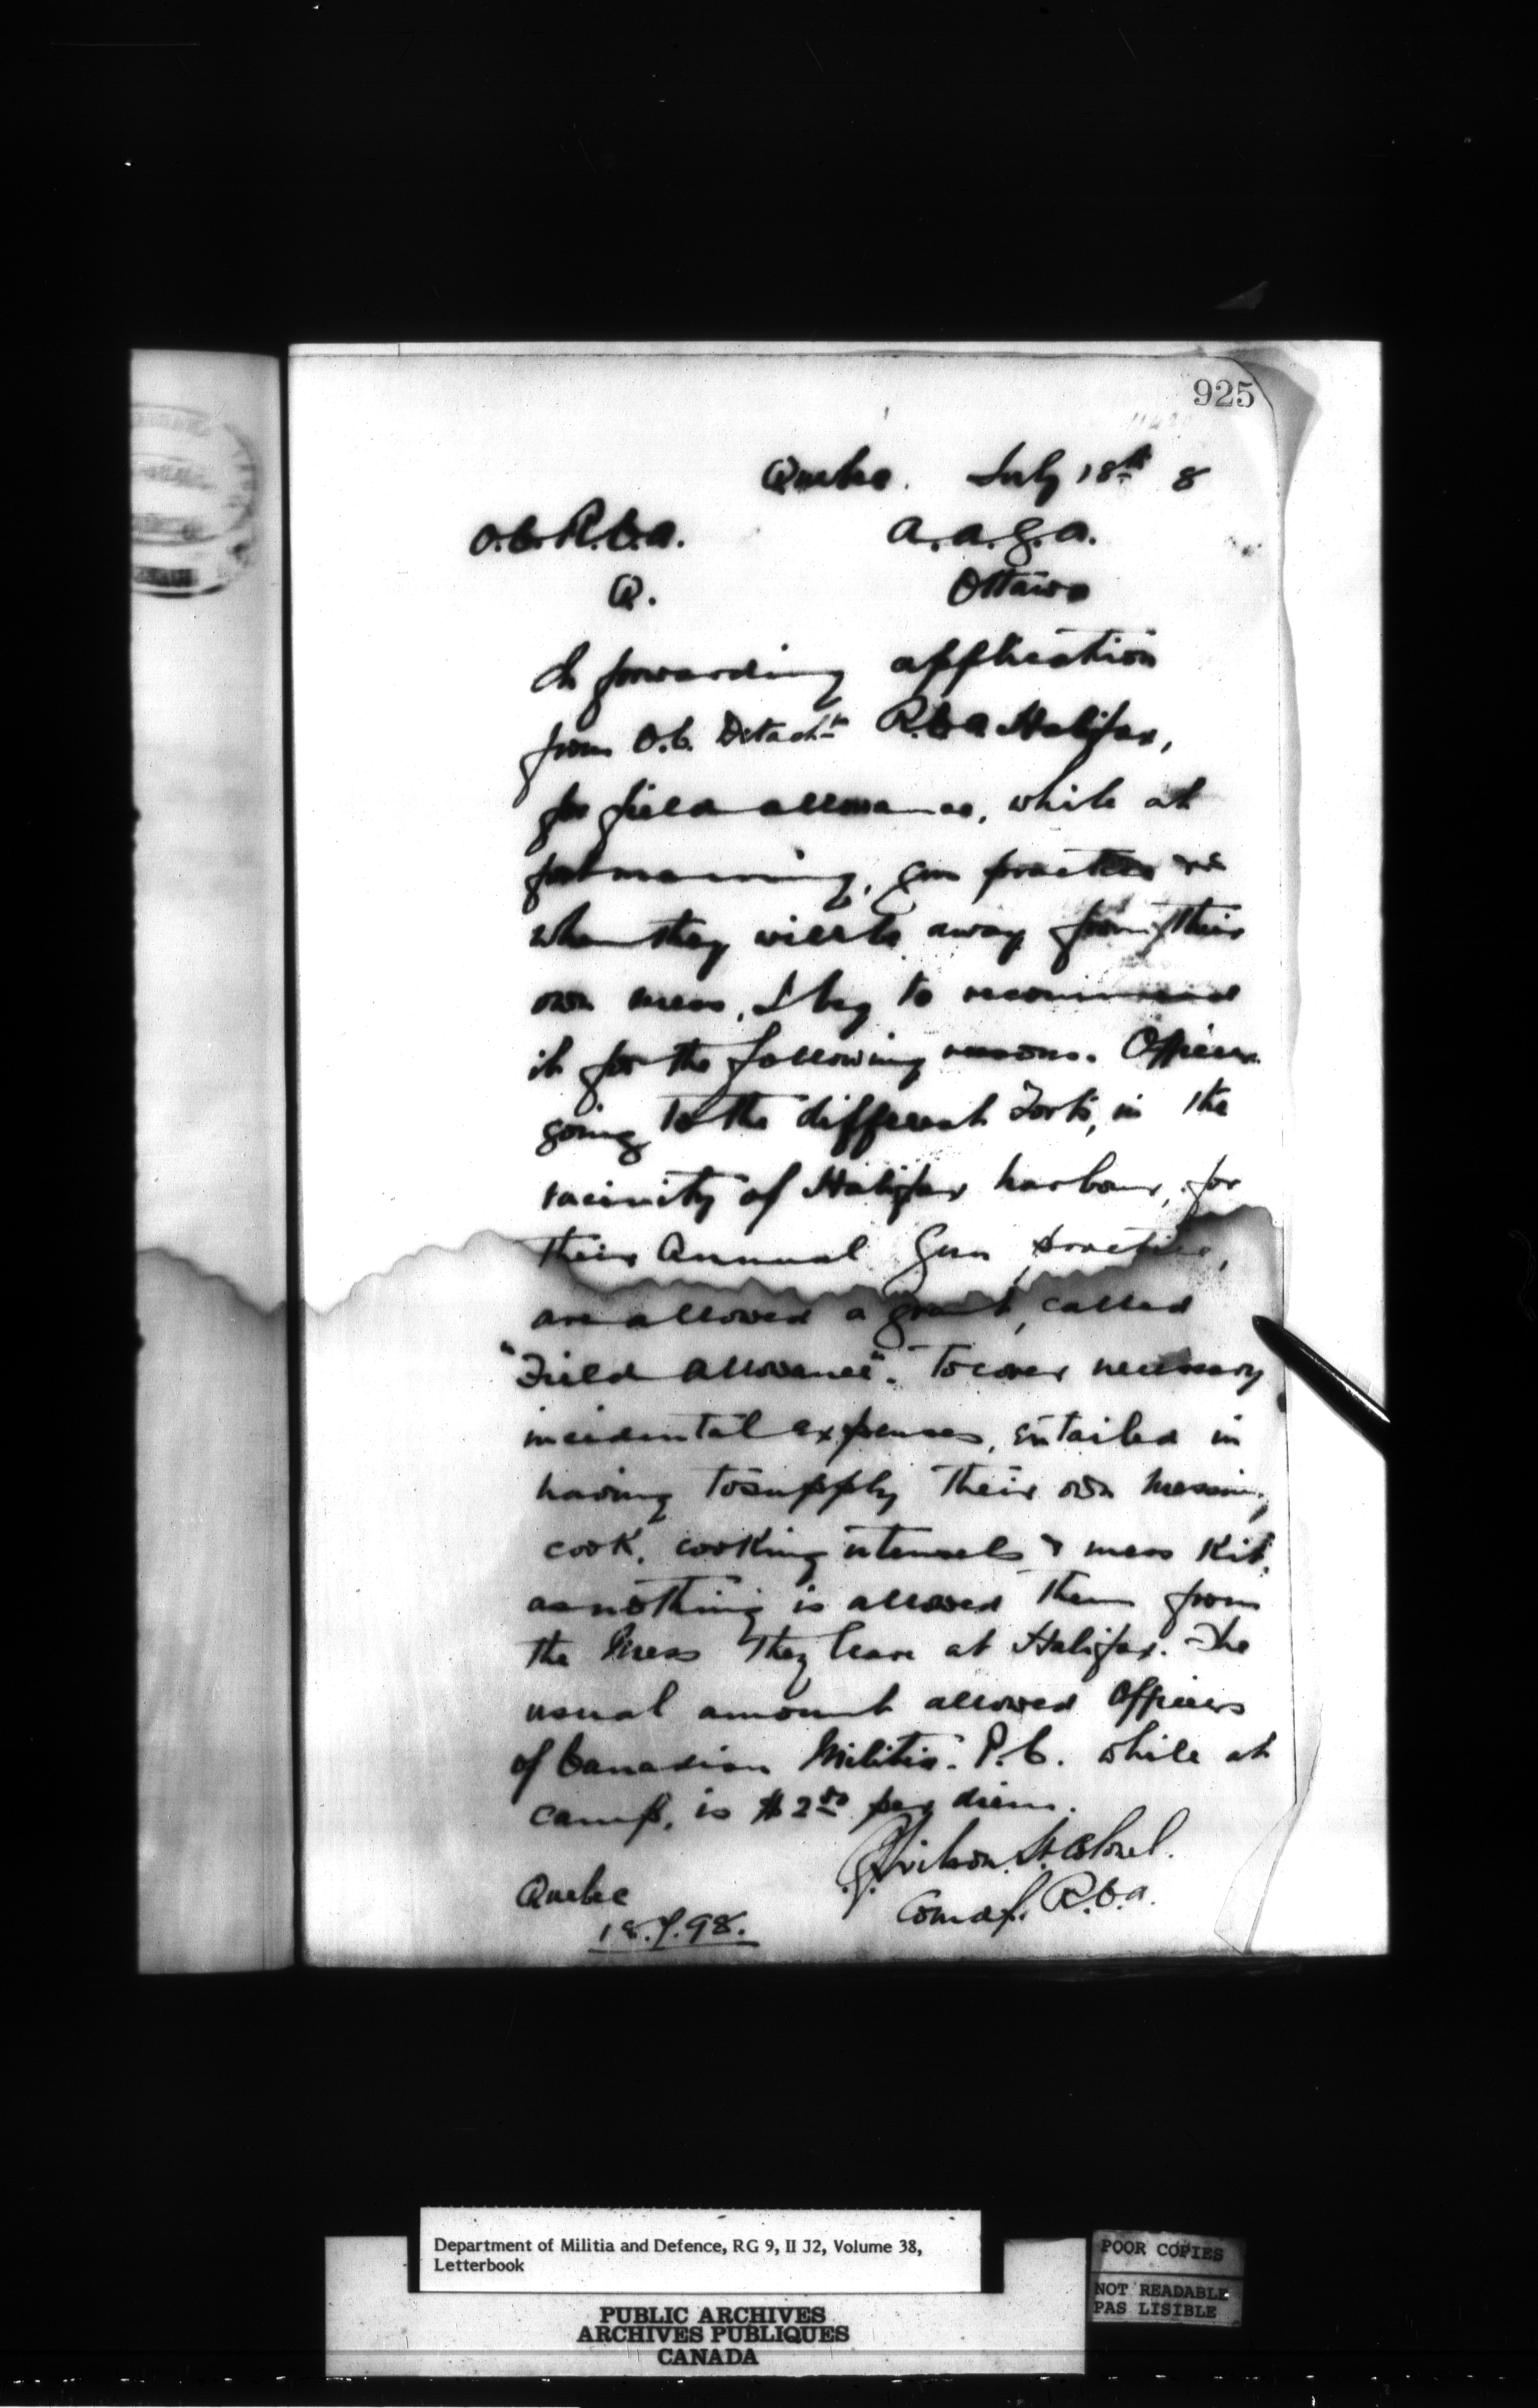 925
Quebec. July 18th 8
O.C.R.C.A. A.A.G.A.
Q. Ottawa
In forwarding application
from O.C. Detacht R.C.A Halifax,
for field allowance, while at
gun practice
when they will be away from their
own mess, I beg to recommend
it for the following reasons. Officers
going to the different Forts, in the
vicinity of Halifax harbour, for
their Annual Gun practice,
are allowed a grant, called
"Field Allowance". To cover necessary
incidental expenses, entailed in
having to supply their own messing,
cook, cooking utensels & mess Kit,
as nothing is allowed them from
the Mess they leave at Halifax. The
usual amount allowed Officers
of Canadian Militia. P.C. while at
camp, is $2.00 per diem.
Wilson. Lt Colonel.
Quebec Comdg. R.C.A.
18.7.98.
Department of Militia and Defence, RG 9, II J2, Volume 38,
Letterbook
PUBLIC ARCHIVES
ARCHIVES PUBLIQUES
CANADA
POOR COPIES
NOT READABLE
PAS LISIBLE